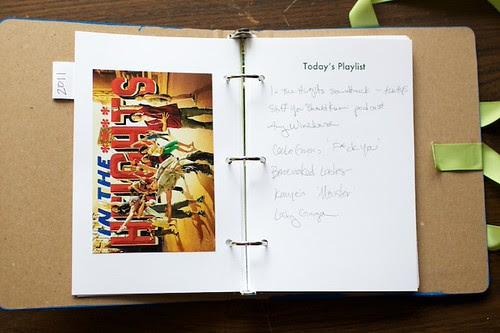 2011
IN THE
HEIGHTS
Today's Playlist
In the Heights soundtrack -
Stuff You Should Know podcast
Amy Winehouse
Cee Lo Green, 'F*ck You'
Barenaked Ladies
Kanye's 'Monster'
Lady Gaga